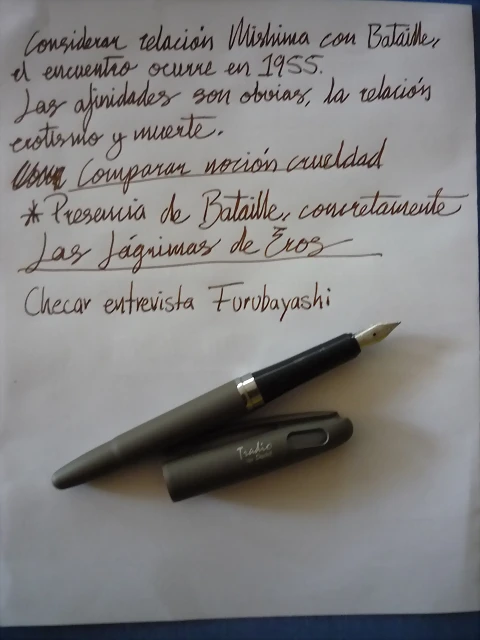 Considerar relación Mishima con Bataille,
el encuentro ocurre en 1955.
Las afinidades son obvias, la relación
erotismo y muerte.
Comparar noción crueldad
* Presencia de Bataille, concretamente
Las Lágrimas de Eros
Checar entrevista Furubayashi
Tradio